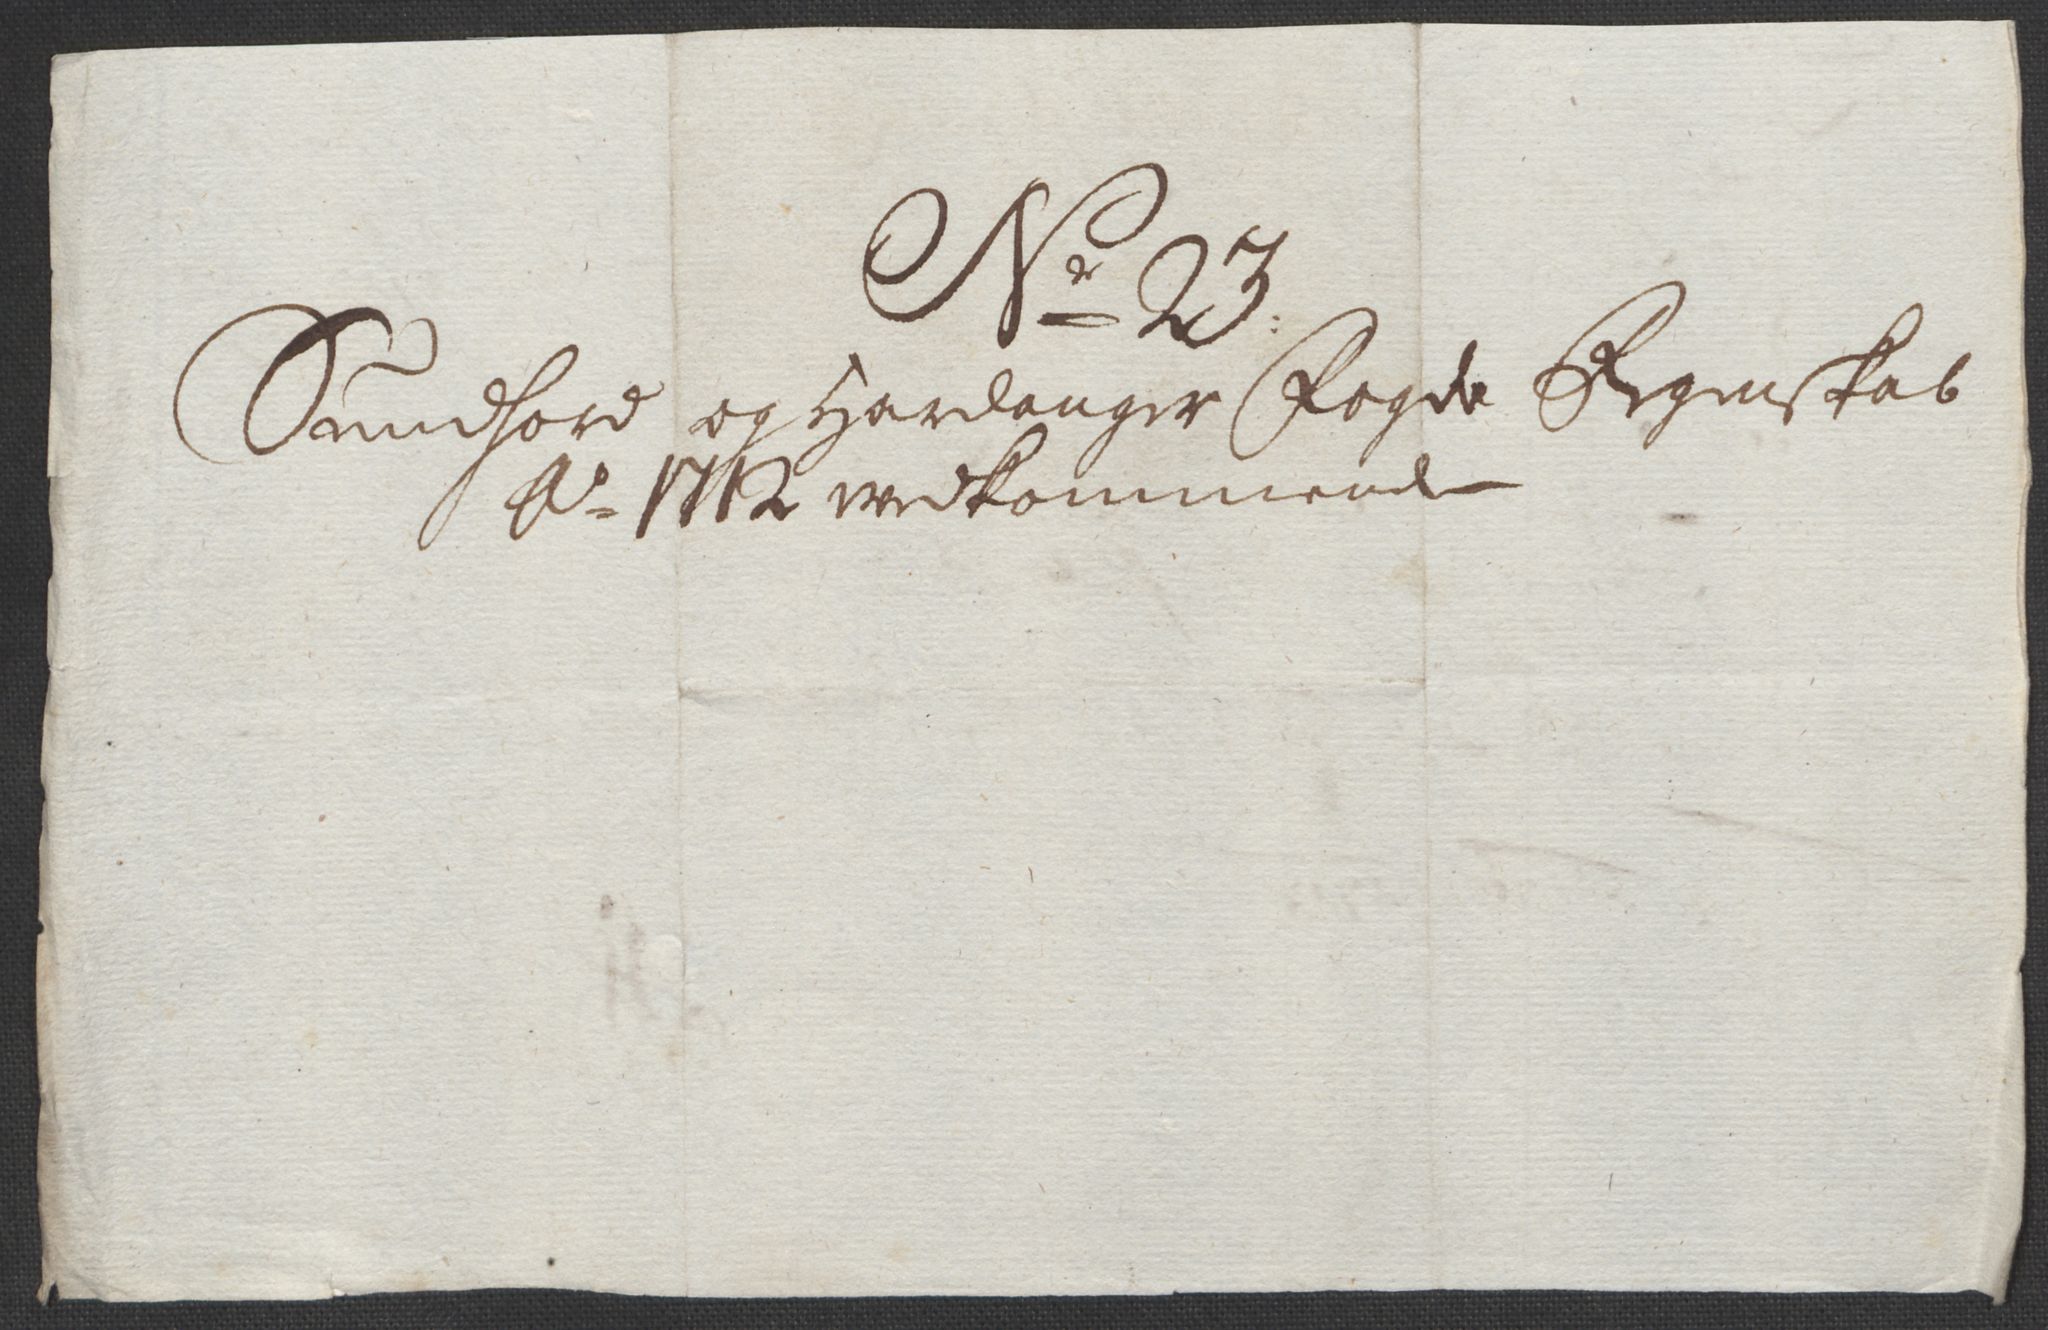 Nr 23.
Sundhord og Hardanger Fogde Regenskab
Ao 1712 vedkommende